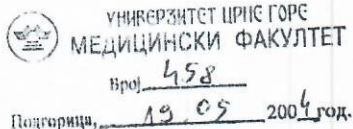 УНИВЕРЗИТЕТ ЦРНЕ ГОРЕ
МЕДИЦИНСКИ ФАКУЛТЕТ
Број 458
Подгорица, 19.05 2004 год.